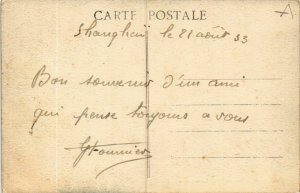 CARTE POSTALE
Shanghaï le 21 août 33
Bon souvenir d'un ami
qui pense toujours a vous